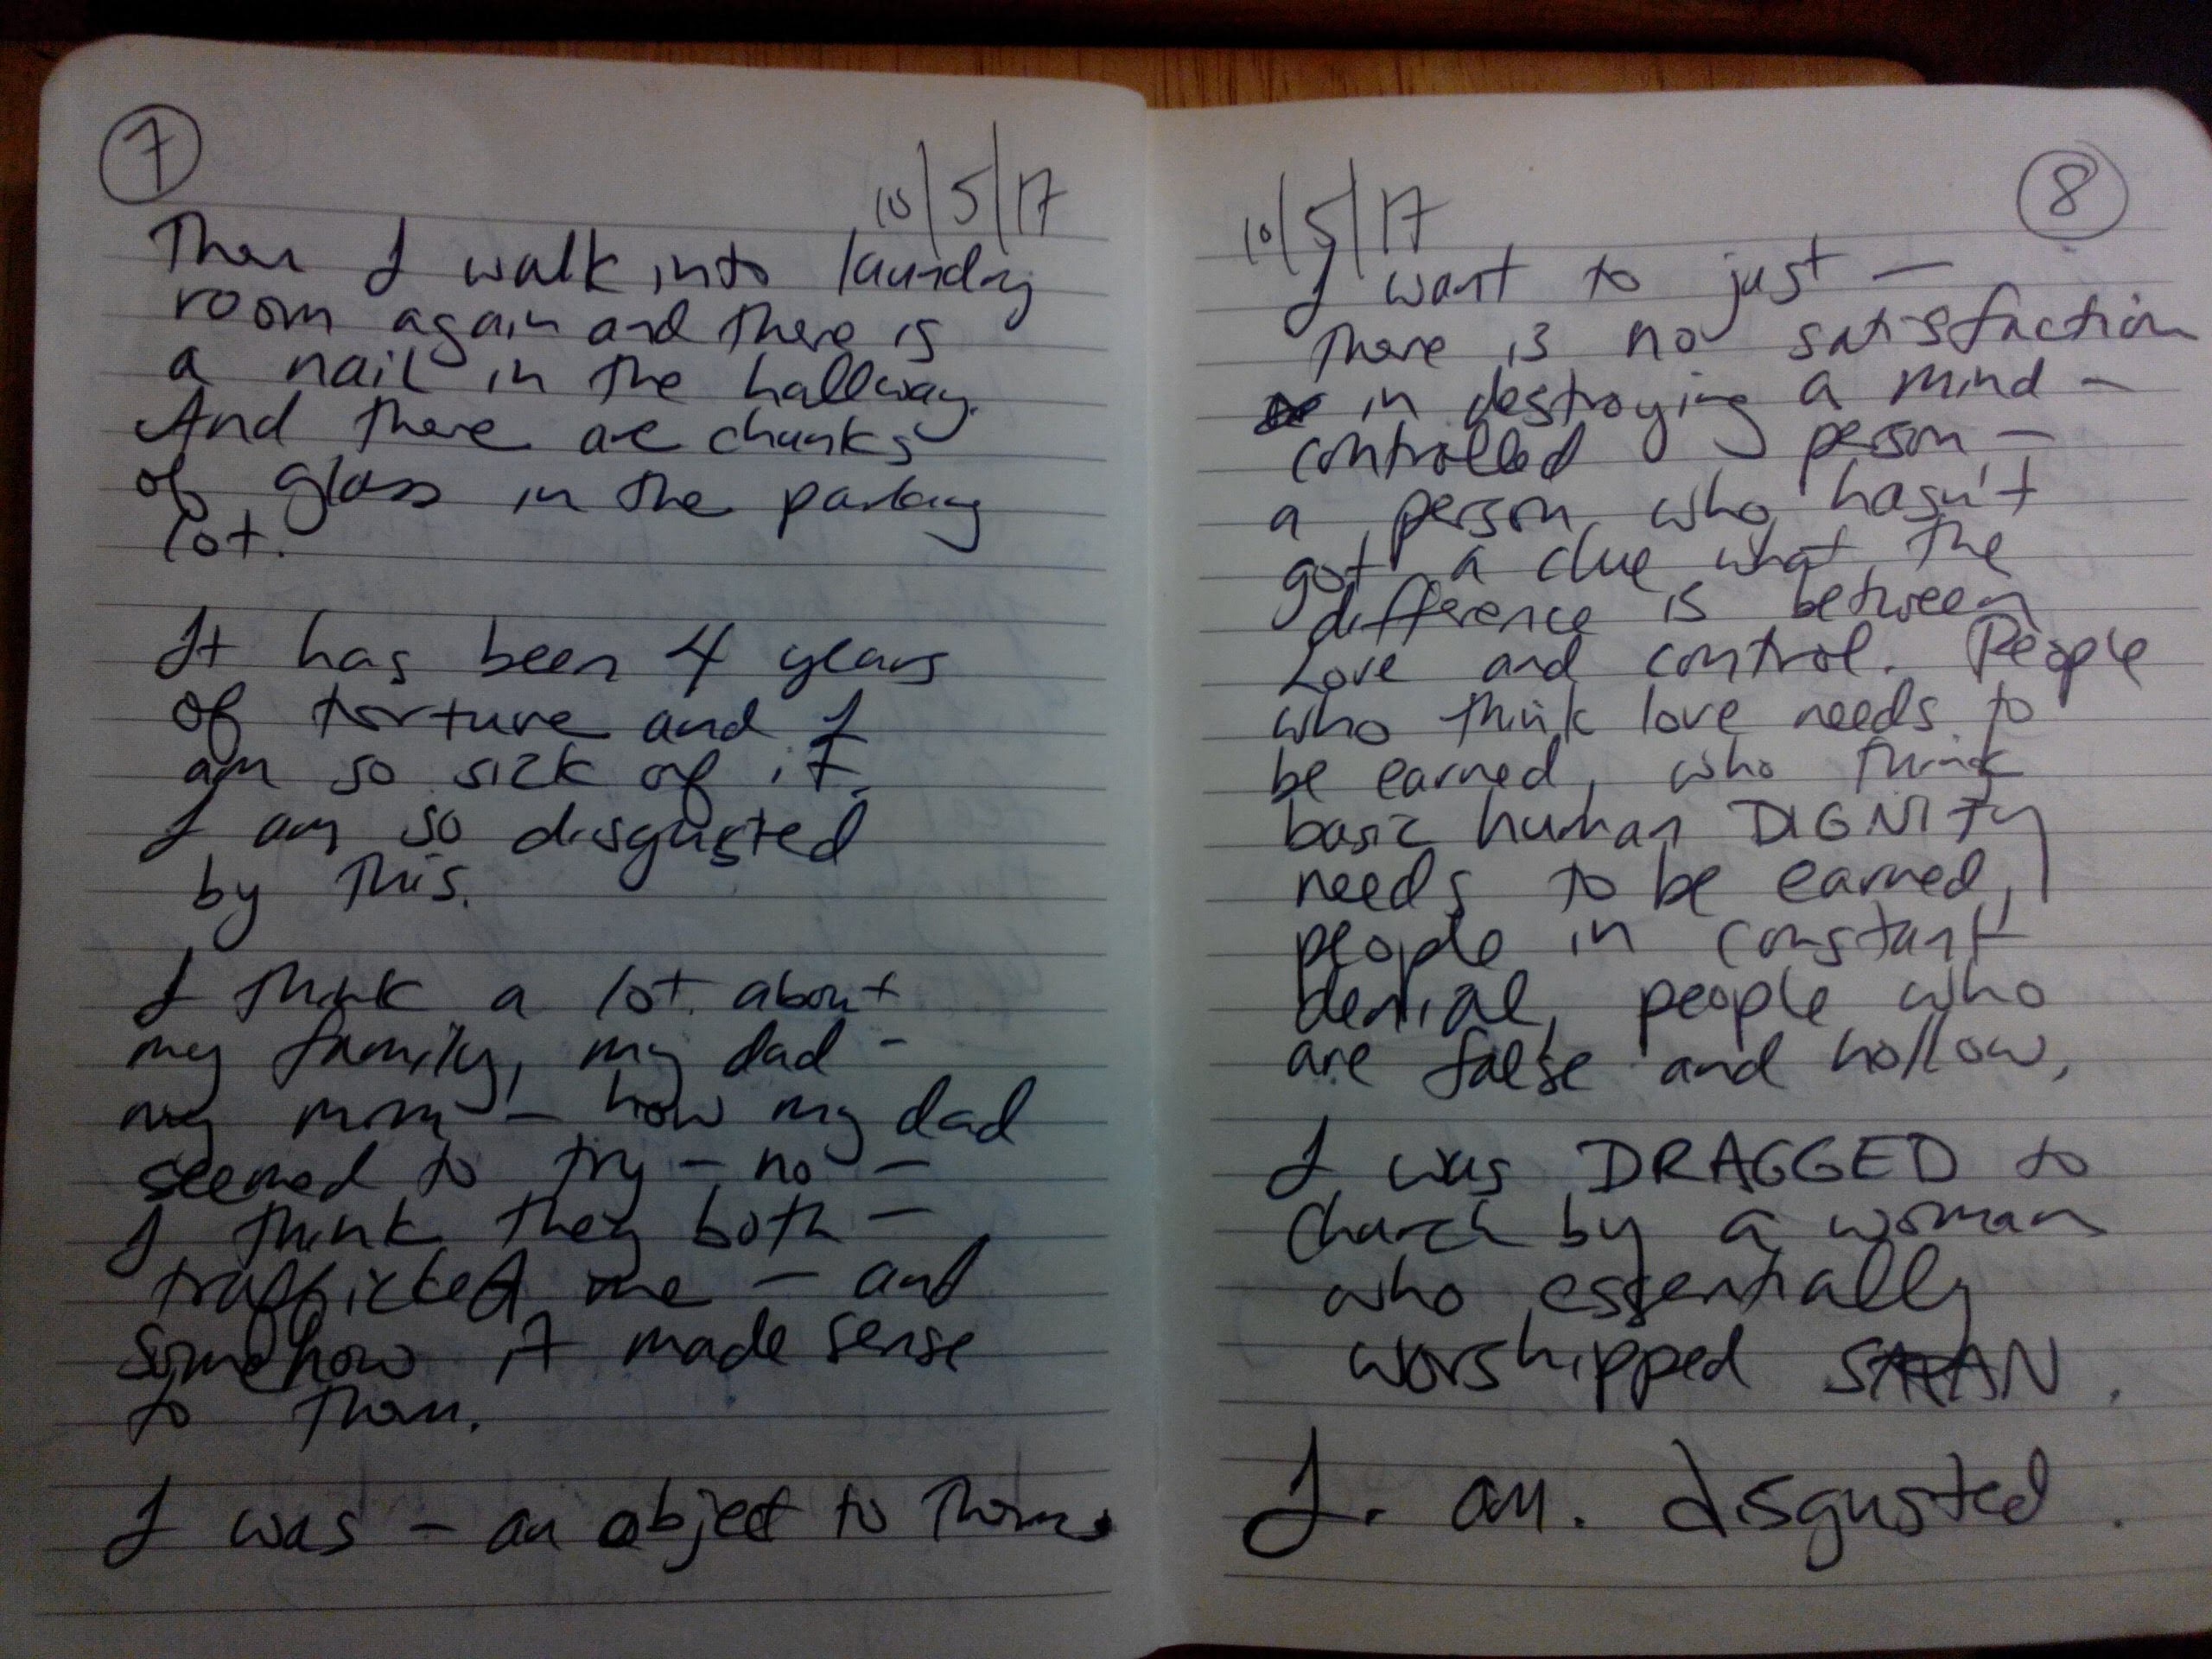 7
10/5/17
Then I walk into laundry
room again and there is
a nail in the hallway.
And there are chunks
of glass in the parking
lot.
It has been 4 years
of torture and I
am so sick of it.
I am so disgusted
by this.
I think a lot about
my family, my dad -
my mom - how my dad
seemed to try - no -
I think they both -
trafficked me - and
somehow it made sense
to them.
I was - an object to them.
8
10/5/17
I want to just -
There is no satisfaction
in destroying a mind -
controlled person -
a person who hasn't
got a clue what the
difference is between
Love and control. People
who think love needs to
be earned, who think
basic human DIGNITY
needs to be earned,
people in constant
denial, people who
are false and hollow,
I was DRAGGED to
church by a woman
who essentially
worshipped SATAN.
I. am. disgusted.